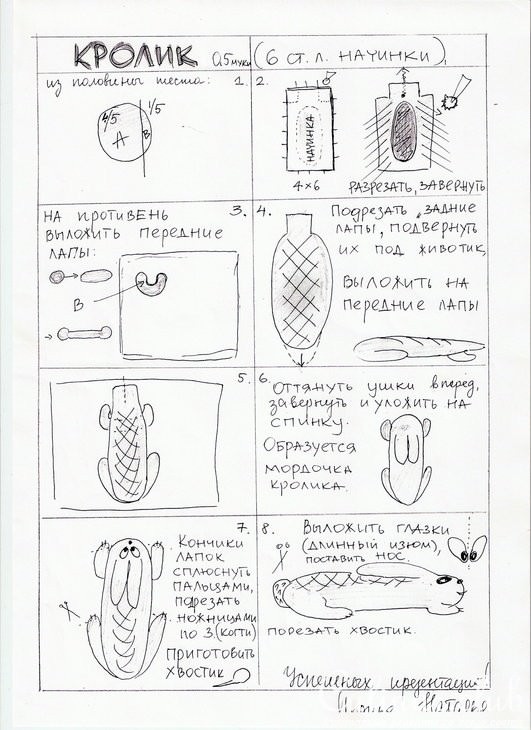 КРОЛИК 0,5 муки (6 ст. л. начинки)
из половины теста: 1.
4/5
1/5
А
В
2.
начинка
4×6
разрезать, завернуть
на противень 3.
выложить передние
лапы:
В
4. Подрезать задние
лапы, подвернуть
их под животик,
выложить на
передние лапы
5.
6. Оттянуть ушки вперед,
завернуть и уложить на
спинку.
Образуется
мордочка
кролика.
7.
Кончики
лапок
сплюснуть
пальцами,
порезать
ножницами
по 3. (когти)
Приготовить
хвостик
8. Выложить глазки
(длинный изюм),
поставить нос.
порезать хвостик.
Успешных презентаций!
Наталья